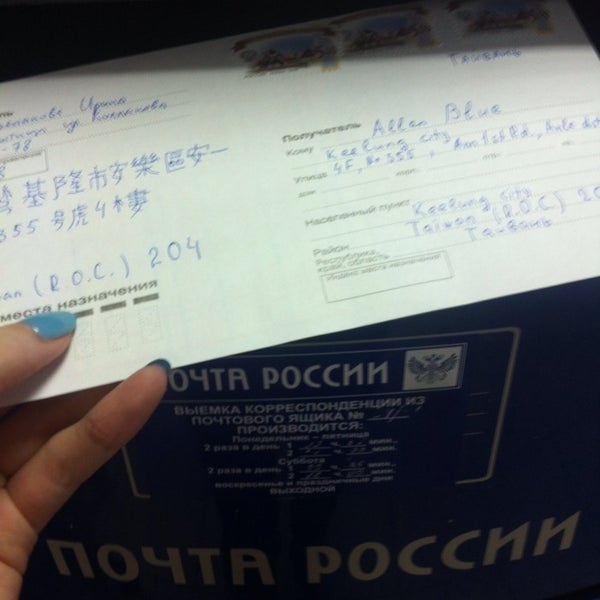 Тайвань
Ирина
ул.
-78
基隆市安樂區安一
355 号虎4樓
(R.O.C.) 204
места назначения
Получатель
Кому Allan Blue
Keelung city
Улица 4F, No 355, Ann 1st Rd., Anle dist
Населенный пункт Keelung city
Taiwan (R.O.C.) 20
Район Тайвань
Республика,
край, область
Индекс места назначения
ПОЧТА РОССИИ
ВЫЕМКА КОРРЕСПОНДЕНЦИИ ИЗ
ПОЧТОВОГО ЯЩИКА №
ПРОИЗВОДИТСЯ:
Понедельник – пятница
2 раза в день 1 ч. мин.,
2 ч. мин.
Суббота
2 раза в день 1 ч. мин.,
2 ч. мин.
воскресенье и праздничные дни
ВЫХОДНОЙ
ПОЧТА РОССИИ